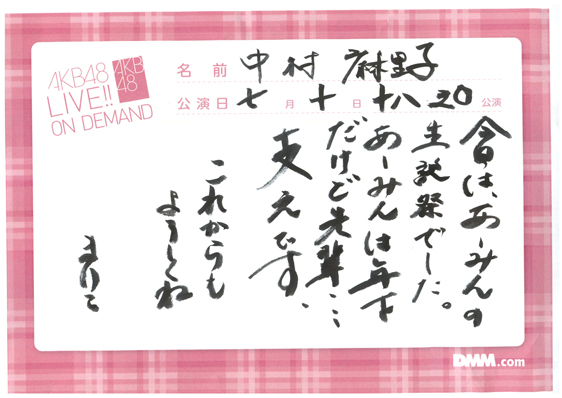 AKB48
LIVE!!
ON DEMAND
AKB
48
名前 中村 麻里子
公演日 七月 十日 十八:30公演
今日は、あーみんの
生誕祭でした。
あーみんは年下
だけど先輩…
支えです。
これからも
よろしくね
まりこ
DMM.com